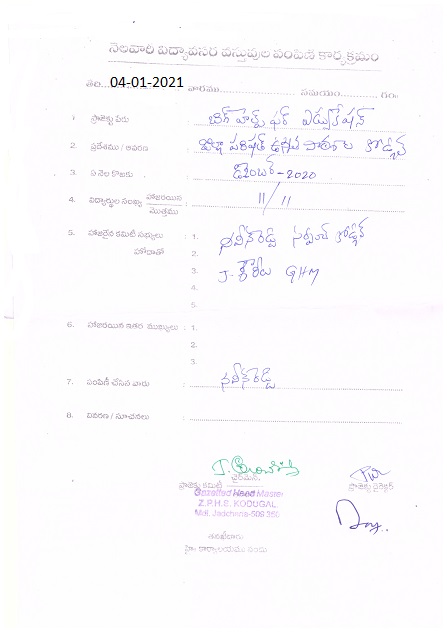 నెలవారి విద్యావసర వస్తువుల పంపిణి కార్యక్రమం
తేది... 04-01-2021 వారము............ సమయం............గం॥
1. ప్రాజెక్టు పేరు : బిగ్ హెల్ప్ ఫర్ ఎడ్యుకేషన్
2. ప్రదేశము / ఆవరణ : జిల్లా పరిషత్ ఉన్నత పాఠశాల కోడ్గల్
3. ఏ నెల కొరకు : డిసెంబర్-2020
4. విద్యార్థుల సంఖ్య హాజరయిన / మొత్తము : 11/11
5. హాజరైన కమిటీ సభ్యులు : 1. నవీన్ రెడ్డి సర్పంచ్ కోడ్గల్
హోదాతో 2.
3. J. GHM
4.
5.
6. హాజరయిన ఇతర ముఖ్యులు : 1.
2.
3.
7. పంపిణీ చేసిన వారు : నవీన్ రెడ్డి
8. వివరణ / సూచనలు :
చైర్మెన్
ప్రాజెక్టు కమిటీ ప్రాజెక్టు డైరెక్టర్
Gazetted Head Master
Z.P.H.S. KODUGAL
Mdl. Jadcherla-509 350